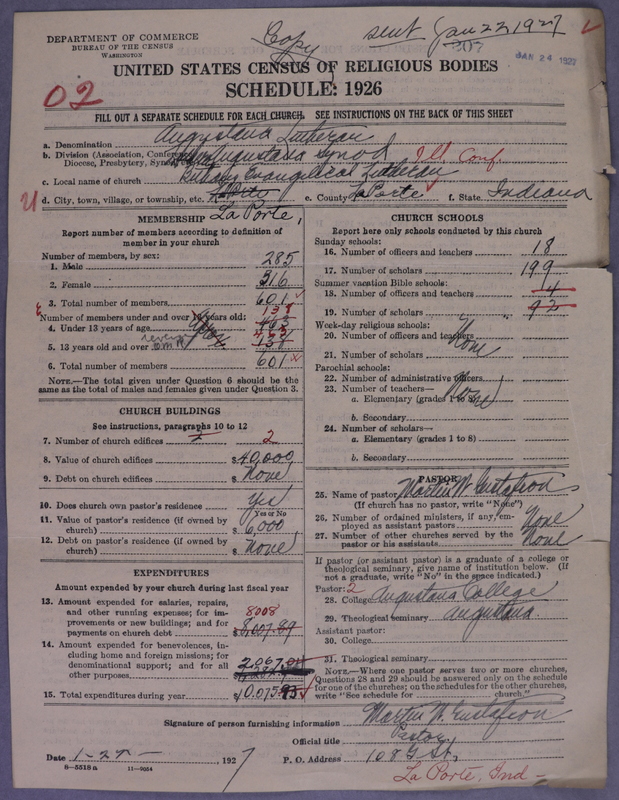 Copy
sent Jan 22 1927
207
JAN 24 1927
DEPARTMENT OF COMMERCE
BUREAU OF THE CENSUS
WASHINGTON
UNITED STATES CENSUS OF RELIGIOUS BODIES
SCHEDULE: 1926
02
FILL OUT A SEPARATE SCHEDULE FOR EACH CHURCH. SEE INSTRUCTIONS ON THE BACK OF THIS SHEET
a. Denomination Augustana Lutheran
b. Division (Association, Conference, Diocese, Presbytery, Synod Augustana Synod Ill. Conf.
c. Local name of church Bethany Evangelical Lutheran
d. City, town, village, or township, etc. La Porte, e. County La Porte f. State Indiana
MEMBERSHIP
Report number of members according to definition of
member in your church
Number of members, by sex:
1. Male 285
2. Female 316
3. Total number of members 601
Number of members under and over 13 years old:
4. Under 13 years of age 138 463
5. 13 years old and over 463 138
6. Total number of members 601
NOTE.—The total given under Question 6 should be
same as the total of males and females given under Question 3.
CHURCH BUILDINGS
See instructions, paragraphs 10 to 12
7. Number of church edifices 2 2
8. Value of church edifices $40,000
9. Debt on church edifices $ None
10. Does church own pastor's residence Yes
Yes or No
11. Value of pastor's residence (if owned by
church) $ 6,000
12. Debt on pastor's residence (if owned by
church) $ None
EXPENDITURES
Amount expended by your church during last fiscal year
13. Amount expended for salaries, repairs,
and other running expenses; for im-
provements or new buildings; and for
payments on church debt 8008 $8,007.89
14. Amount expended for benevolences, in-
cluding home and foreign missions; for
denominational support; and for all
other purposes 2,067.04
15. Total expenditures during year $10,075.93
CHURCH SCHOOLS
Report here only schools conducted by this church
Sunday schools:
16. Number of officers and teachers 18
17. Number of scholars 199
Summer vacation Bible schools:
18. Number of officers and teachers 4
19. Number of scholars 92
Week-day religious schools:
20. Number of officers and teachers
21. Number of scholars None
Parochial schools:
22. Number of administrative officers
23. Number of teachers—
a. Elementary (grades 1 to 8) None
b. Secondary
24. Number of scholars—
a. Elementary (grades 1 to 8)
b. Secondary
PASTOR
25. Name of pastor Martin W. Gustafson
(If church has no pastor, write "None")
26. Number of ordained ministers, if any, em-
ployed as assistant pastors None
27. Number of other churches served by the
pastor or his assistants None
If pastor (or assistant pastor) is a graduate of a college or
theological seminary, give name of institution below. (If
not a graduate, write "No" in the space indicated.)
Pastor: 2
28. College Augustana College
29. Theological seminary Augustana
Assistant pastor:
30. College
31. Theological seminary
NOTE.—Where one pastor serves two or more churches,
Questions 28 and 29 should be answered only on the schedule
for one of the churches; on the schedules for the other churches,
write "See schedule for church."
Signature of person furnishing information Martin W. Gustafson
Official title Pastor
Date 1-27- 1927 P. O. Address 108 G St,
8—5518 a 11—9054
La Porte, Ind-